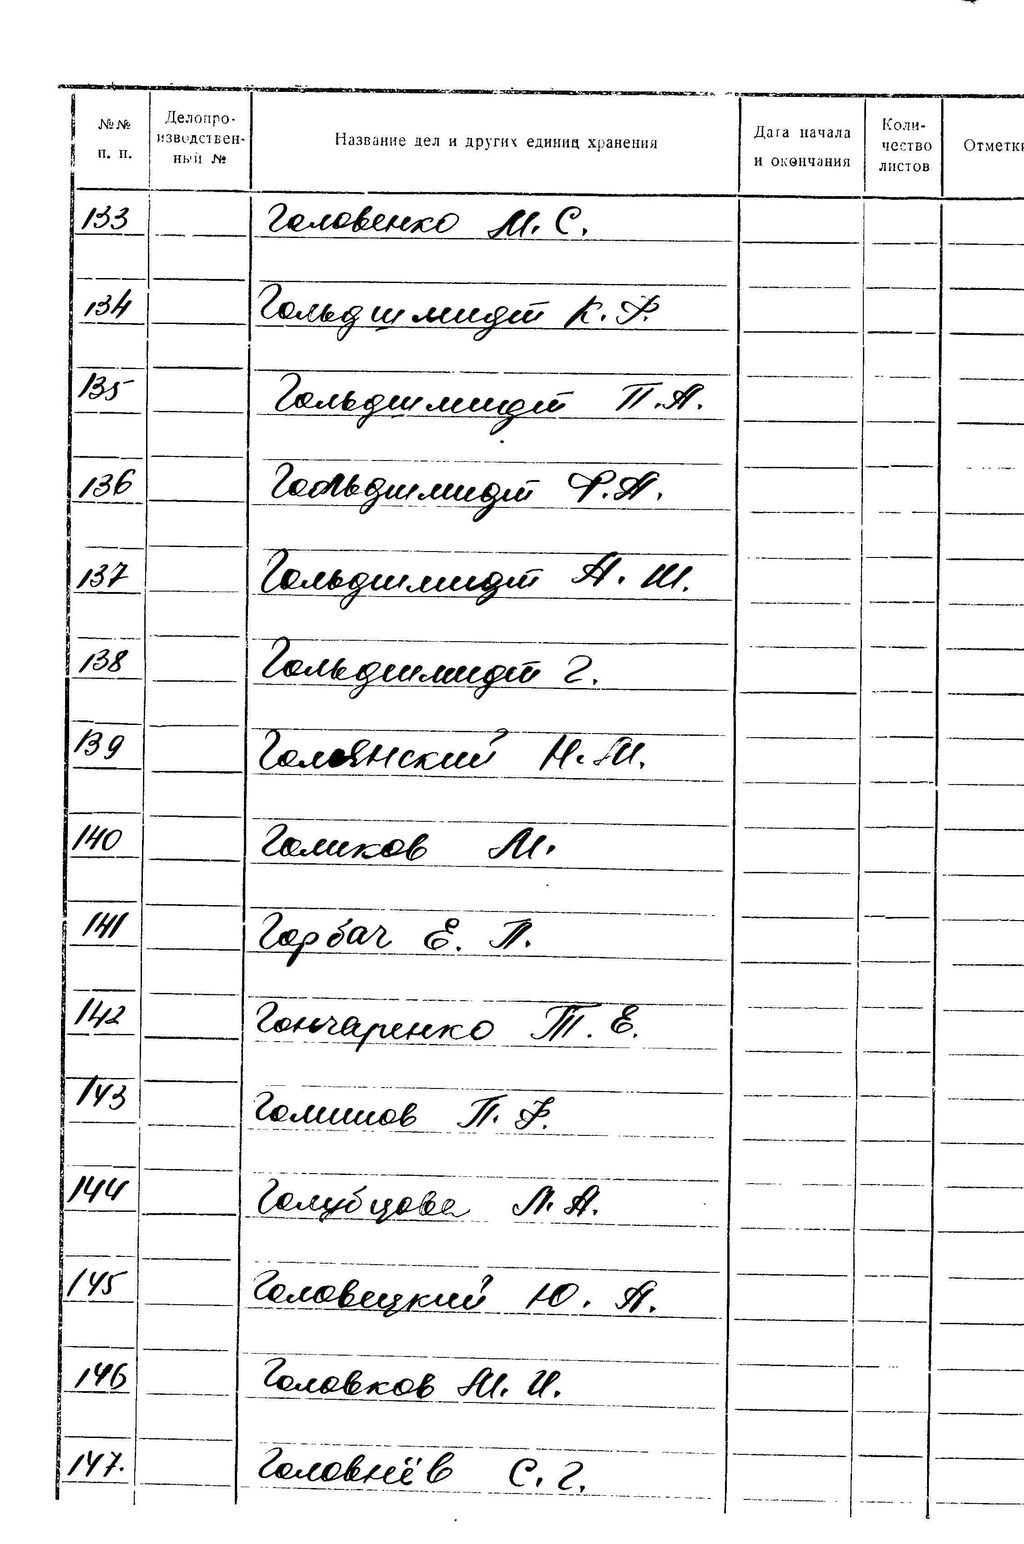 №№ п. п. Делопро-изводствен-ный № Название дел и других единиц хранения Дата начала и окончания Коли-чество листов Отметки
133 Головенко М. С.
134 Гольдшмидт К. Ф.
135 Гольдшмидт П. А.
136 Гольдшмидт Ф. А.
137 Гольдшмидт А. Ш.
138 Гольдшмидт Г.
139 Голянский Н. М.
140 Голиков М.
141 Горбач Е. П.
142 Гончаренко Т. Е.
143 П. Ф.
144 Голубцова Л. А.
145 Головецкий Ю. А.
146 Головков М. И.
147. Головнёв С. Г.